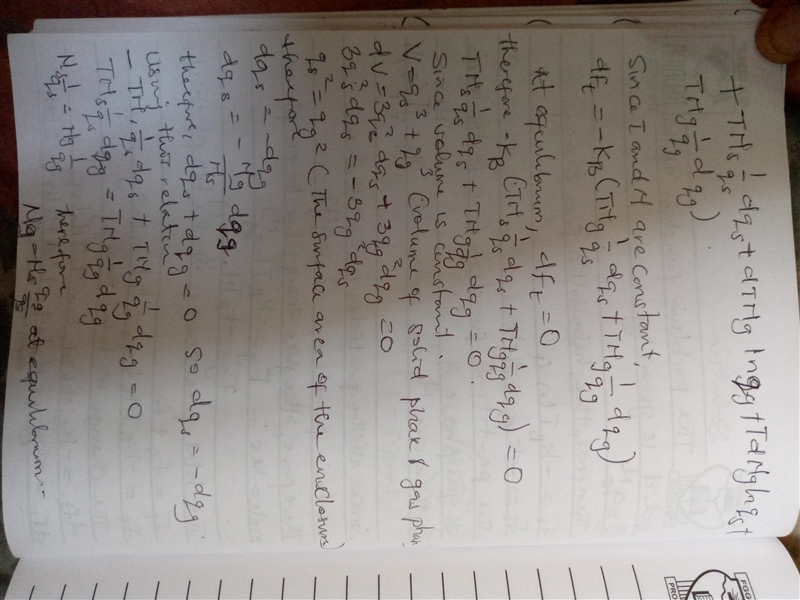 + THs 1/qs dqs + dTHg lnqg + TdNg lnqs +
THg 1/qg dqg)
Since T and N are constant,
dft = -KB(THg 1/qs dqs + THg 1/qg dqg)
At equilibrium, dft = 0
therefore -KB (THs 1/qs dqs + THg 1/qg dqg) = 0
THs 1/qs dqs + THg 1/qg dqg = 0.
Since volume is constant.
V = qs³ + qg³ (volume of solid phase & gas phase
dV = 3qs² dqs + 3qg² dqg = 0
3qs² dqs = -3qg² dqs
qs² = qg² (The surface area of the enclosure)
therefore
dqs = -dqg
dqs = - Ng/Ns dqg
therefore, dqs + dqg = 0 so dqs = -dqg
Using this relation
- THs 1/qs dqs + THg 1/qg dqg = 0
THs 1/qs dqg = THg 1/qg dqg
Ns 1/qs = Hg 1/qg therefore
Ng = Hs qg/qs at equilibrium.
FGG
PRO